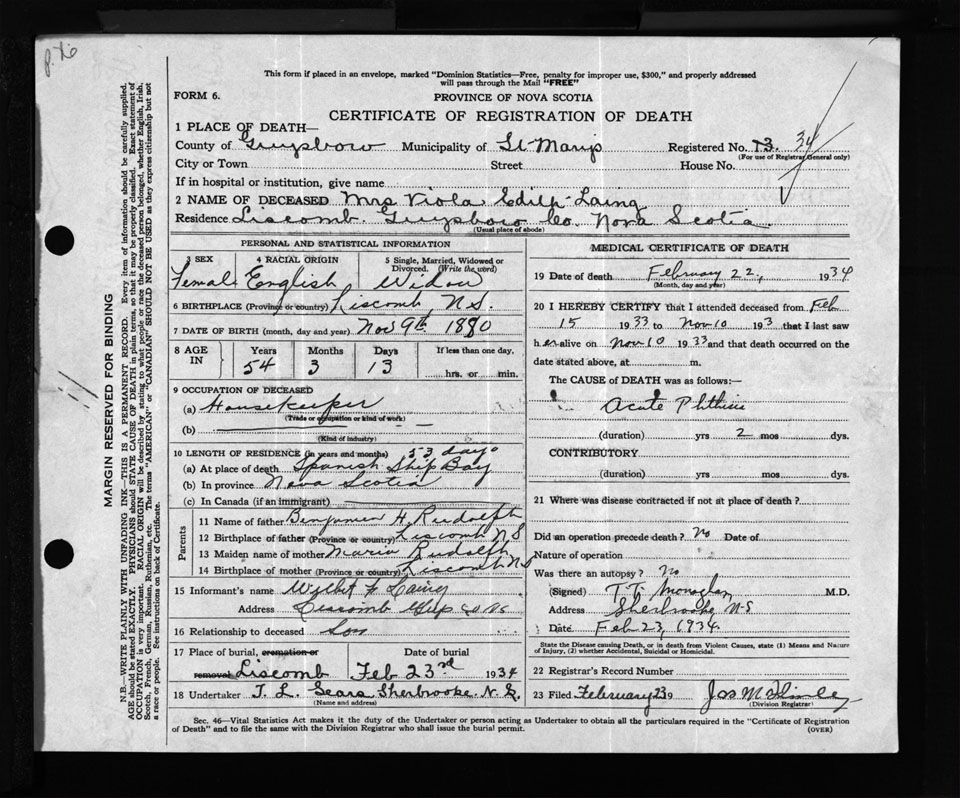 p. 26
This form if placed in an envelope, marked "Dominion Statistics—Free, penalty for improper use, $300," and properly addressed
will pass through the Mail "FREE"
FORM 6.
PROVINCE OF NOVA SCOTIA
CERTIFICATE OF REGISTRATION OF DEATH
1 PLACE OF DEATH—
County of Guysboro Municipality of St Marys Registered No. 13. 34
(For use of Registrar General only)
City or Town Street House No.
If in hospital or institution, give name
2 NAME OF DECEASED Mrs Viola Edith Laing
Residence Liscomb Guysboro Co. Nova Scotia
(Usual place of abode)
PERSONAL AND STATISTICAL INFORMATION
3 SEX 4 RACIAL ORIGIN 5 Single, Married, Widowed or
Divorced. (Write the word)
Female English Widow
6 BIRTHPLACE (Province or country) Liscomb N S.
7 DATE OF BIRTH (month, day and year) Nov 9th 1880
8 AGE IN Years Months Days If less than one day,
54 3 13 hrs. or min.
9 OCCUPATION OF DECEASED
(a) Housekeeper
(Trade or occupation or kind of work)
(b)
(Kind of industry)
10 LENGTH OF RESIDENCE (in years and months) 53 days
(a) At place of death Spanish Ship Bay
(b) In province Nova Scotia
(c) In Canada (if an immigrant)
Parents
11 Name of father Benjamin H. Rudolph
12 Birthplace of father (Province or country) Liscomb N S
13 Maiden name of mother Maria Rudolph
14 Birthplace of mother (Province or country) Liscomb N S
15 Informant's name F Laing
Address Liscomb
16 Relationship to deceased Son
17 Place of burial, cremation or Date of burial
removal Liscomb Feb 23rd 1934
18 Undertaker T. L. Sears Sherbrooke N. S.
(Name and address)
MEDICAL CERTIFICATE OF DEATH
19 Date of death February 22, 1934
(Month, day and year)
20 I HEREBY CERTIFY that I attended deceased from Feb
15 1933 to Nov 10 193 that I last saw
h er alive on Nov 10 1933 and that death occurred on the
date stated above, at m.
The CAUSE of DEATH was as follows:—
Acute Phthisis
(duration) yrs 2 mos dys.
CONTRIBUTORY
(duration) yrs. mos. dys.
21 Where was disease contracted if not at place of death?
Did an operation precede death? No Date of
Nature of operation
Was there an autopsy? No
(Signed) T. T. Monaghan M.D.
Address Sherbrooke N-S
Date Feb 23, 1934.
State the Disease causing Death, or in death from Violent Causes, state (1) Means and Nature
of Injury, (2) whether Accidental, Suicidal or Homicidal.
22 Registrar's Record Number
23 Filed February 23 9 Jas
(Division Registrar)
Sec. 46—Vital Statistics Act makes it the duty of the Undertaker or person acting as Undertaker to obtain all the particulars required in the "Certificate of Registration
of Death" and to file the same with the Division Registrar who shall issue the burial permit. (OVER)
MARGIN RESERVED FOR BINDING
N.B.—WRITE PLAINLY WITH UNFADING INK—THIS IS A PERMANENT RECORD. Every item of information should be carefully supplied.
AGE should be stated EXACTLY. PHYSICIANS should STATE CAUSE OF DEATH in plain terms, so that it may be properly classified. Exact statement of
OCCUPATION is very important. RACIAL ORIGIN will be described by stating to what people or race the deceased person belonged, whether English, Irish,
Scotch, French, German, Russian, Ruthenian, etc. The terms "AMERICAN" or "CANADIAN" SHOULD NOT BE USED as they express citizenship but not
a race or people. See instructions on back of Certificate.